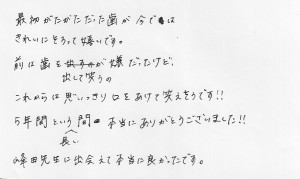 最初がたがただった歯が今では
きれいにそろって嬉いです。
前は歯を出して笑うのが嫌だったけど、
これからは思いっきり口をあけて笑えそうです!!
5年間という長い間 本当にありがとうございました!!
峰田先生に出会えて本当に良かったです。